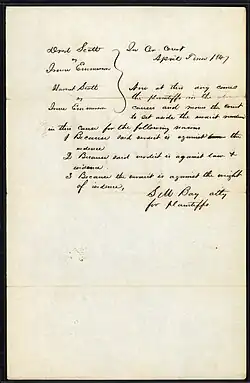 Dred Scott
vs
Irene Emmerson
Harriet Scott
vs
Irene Emmerson
In Co Court
April Term 1847
Now at this day comes
the plaintiffs in the
causes and moves the court
to set aside the
in this cause for the following reasons
1 Because said verdict is against the
evidence
2 Because said verdict is against law &
evidence
3 Because the verdict is against the weight
of evidence,
S. M. Bay atty
for Plaintiffs